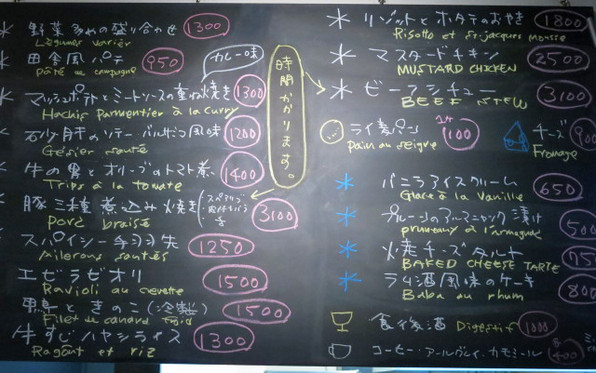 野菜多めの盛り合わせ 1300
Légumes varier
田舎風パテ 950
pâté de campagne
カレー味
マッシュポテトとミートソースの重ね焼き 1300
Hachis Parmentier à la curry
砂肝のソテー バルサミコ風味 1200
Gésier sauté
牛の胃とオリーブのトマト煮 1400
Trips à la tomate
豚三種煮込み焼き 3100
Porc braisé
スパイシー手羽先 1250
Ailerons sautés
エビラビオリ 1500
Ravioli au crevette
ときのこ(冷製) 1500
Filet de canard froid
牛すじハヤシライス 1300
Ragoût et riz
時間かかります。
リゾットとホタテのおやき 1800
Risotto et St-jacques mousse
マスタードチキン 2500
MUSTARD CHICKEN
ビーフシチュー 3100
BEEF STEW
ライ麦パン 100
Pain au seigre
チーズ 900
Fromage
バニラアイスクリーム 650
Glace à la Vanille
プルーンのアルマニャック漬け 500
焼チーズタルト
BAKED CHEESE TARTE
ラム酒風味のケーキ 800
Baba au rhum
食後酒 Digestif 1000
コーヒー・アールグレイ・カモミール 400